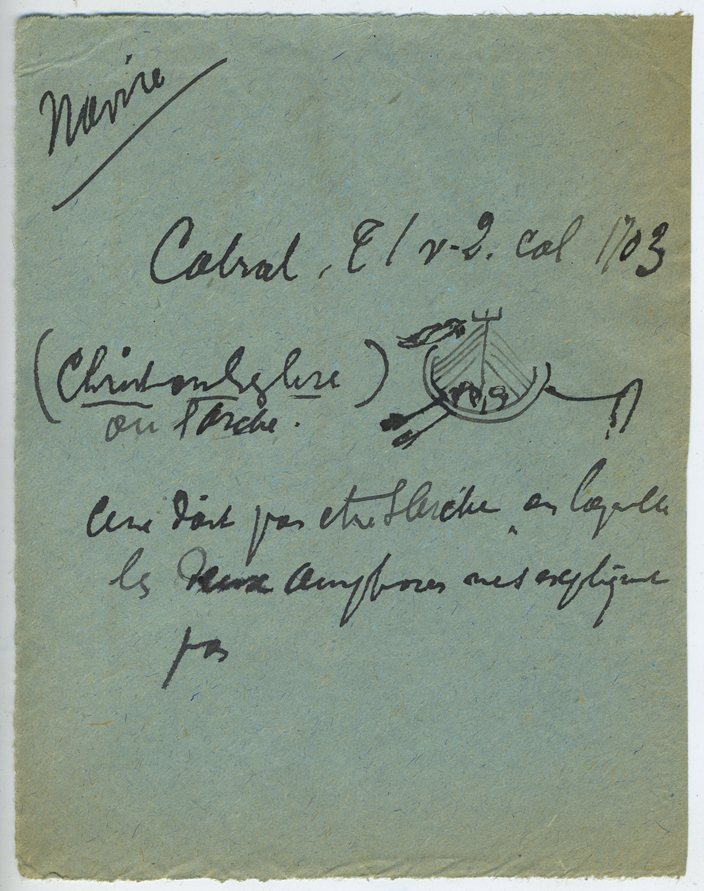 Navire
Cabrol, T 1 v-2. col 1703
(Christ ou l'eglise)
ou l'Arche.
Ce ne doit pas etre l'arche, en laquelle
les deux amphores ne s'expliquent
pas